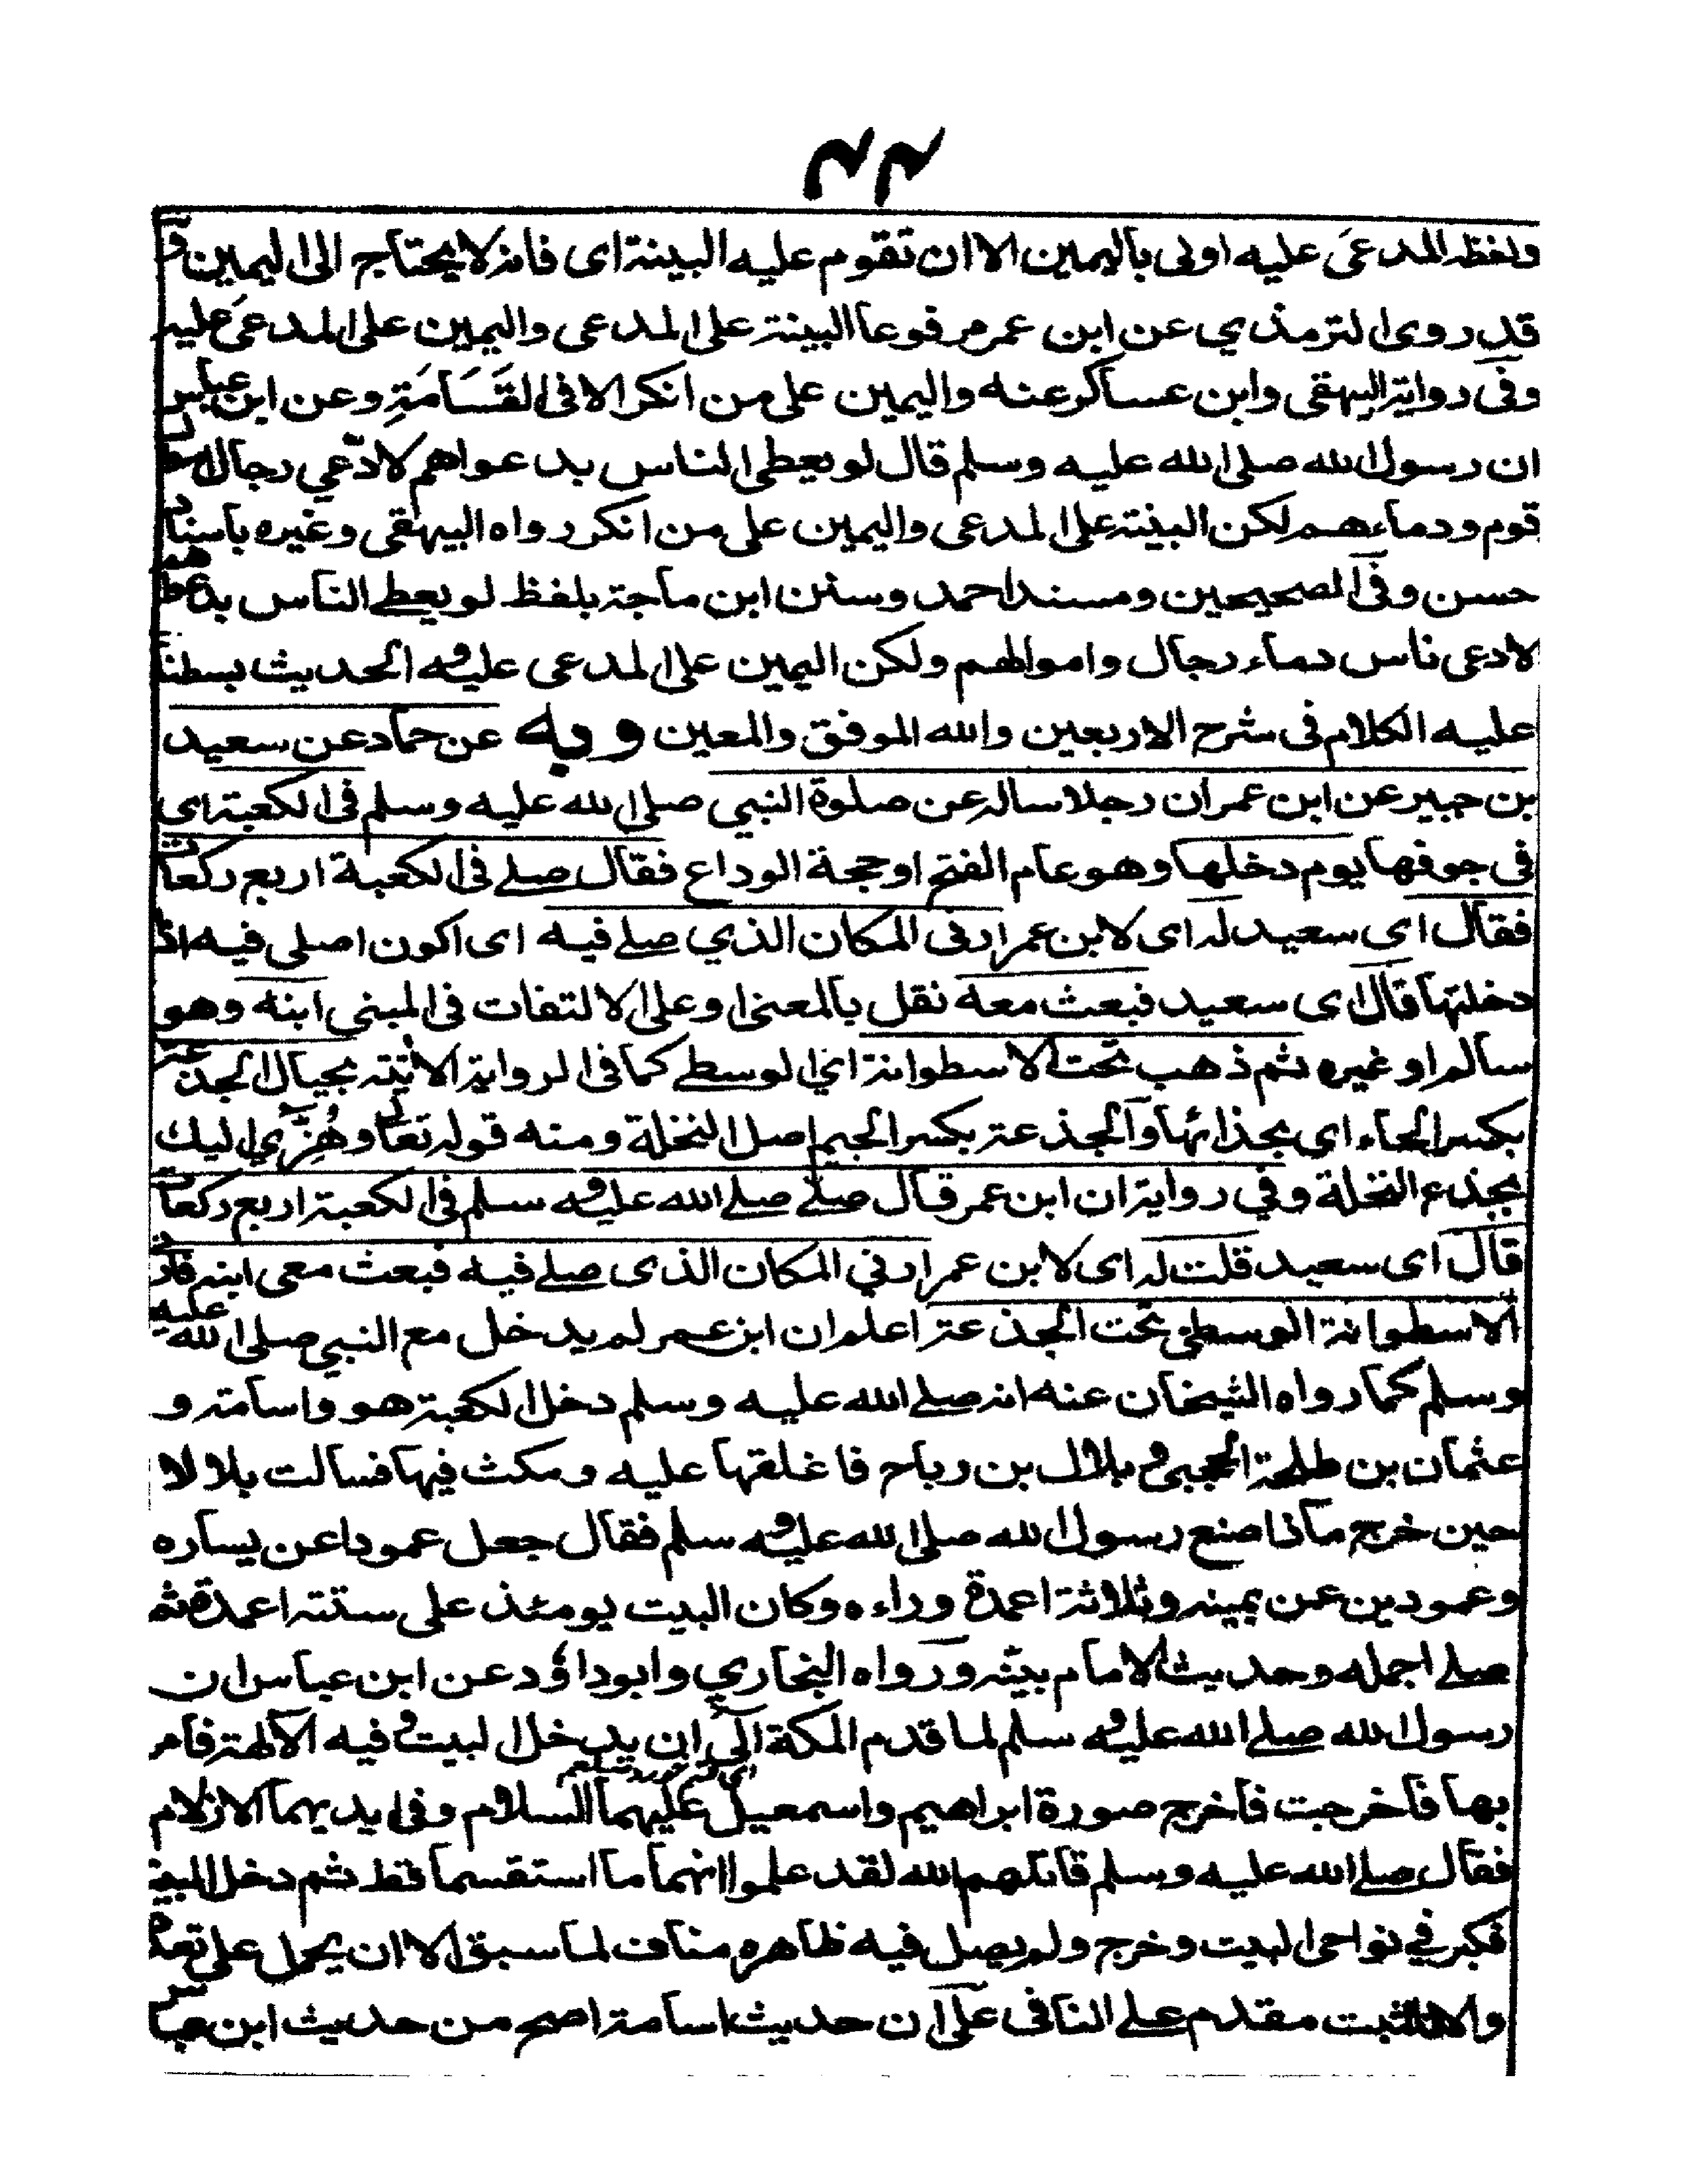 ٤٤
ولفظه المدعى عليه اولى باليمين الا ان تقوم عليه البينة اى فانه لا يحتاج الى اليمين و
قد روى الترمذي عن ابن عمر مرفوعا البينة على المدعى واليمين على المدعى عليه
وفى رواية البيهقى وابن عساكر عنه واليمين على من انكر الا فى القَسَامَةِ وعن ابن عباس
ان رسول الله صلى الله عليه وسلم قال لو يعطى الناس بدعواهم لادّعي رجال اموال
قوم ودماءهم لكن البينة على المدعى واليمين على من انكر رواه البيهقى وغيره باسناد
حسن وفى الصحيحين ومسند احمد وسنن ابن ماجة بلفظ لو يعطے الناس بدعواهم
لادعى ناس دماء رجال واموالهم ولكن اليمين على المدعى عليه الحديث بسطنا
عليه الكلام فى شرح الاربعين والله الموفق والمعين وبه عن حماد عن سعيد
بن جبير عن ابن عمر ان رجلا ساله عن صلوة النبي صلى الله عليه وسلم فى الكعبة اى
فى جوفها يوم دخلها وهو عام الفتح او حجة الوداع فقال صلے فى الكعبة اربع ركعات
فقال اي سعيد له اى لابن عمر ارنى المكان الذي صلے فيه اى اكون اصلى فيه اذا
دخلتها قال اى سعيد فبعث معه نقل بالمعنى او على الالتفات فى المبنى ابنه وهو
سالم او غيره ثم ذهب تحت الاسطوانة اي الوسطے كما فى الرواية الاتية بحيال الجذعة
بكسر الحاء اى بحذائها والجذعة بكسر الجيم اصل النخلة ومنه قوله تعالى وهُزِّي اليك
بجذع النخلة وفي رواية ان ابن عمر قال صلے صلے الله عليه وسلم فى الكعبة اربع ركعات
قال اى سعيد قلت له اى لابن عمر ارني المكان الذى صلے فيه فبعث معى ابنه فاذ
الاسطوانة الوسطى تحت الجذعة اعلم ان ابن عمر لم يدخل مع النبي صلى الله عليه
وسلم كما رواه الشيخان عنه انه صلے الله عليه وسلم دخل الكعبة هو واسامة و
عثمان بن طلحة الحجبى وبلال بن رباح فاغلقها عليه ومكث فيها فسالت بلالا
حين خرج ماذا صنع رسول الله صلى الله عليه وسلم فقال جعل عمودا عن يساره
وعمودين عن يمينه وثلاثة اعمدة وراءه وكان البيت يومئذ على ستة اعمدة ثم
صلے اجمله وحديث الامام بيّنه ورواه البخاري وابوداؤد عن ابن عباس ان
رسول الله صلے الله عليه وسلم لما قدم المكة ابى ان يدخل البيت وفيه الآلهة فامر
بها فاخرجت فاخرج صورة ابراهيم واسمعيل عليهما السلام وفى ايديهما الازلام
فقال صلے الله عليه وسلم قاتلهم الله لقد علموا انهما ما استقسما قط ثم دخل البيت
فكبر في نواحى البيت وخرج ولم يصل فيه ظاهره مناف لما سبق الا ان يحمل على تعدد
والا فالمثبت مقدم علے النافى على ان حديث اسامة اصح من حديث ابن عباس